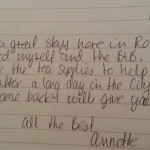 a great stay here in Ro
ed myself and the B&B.
the tea supplies to help
after a long day in the City
ome back & will give you
all the Best
Annette